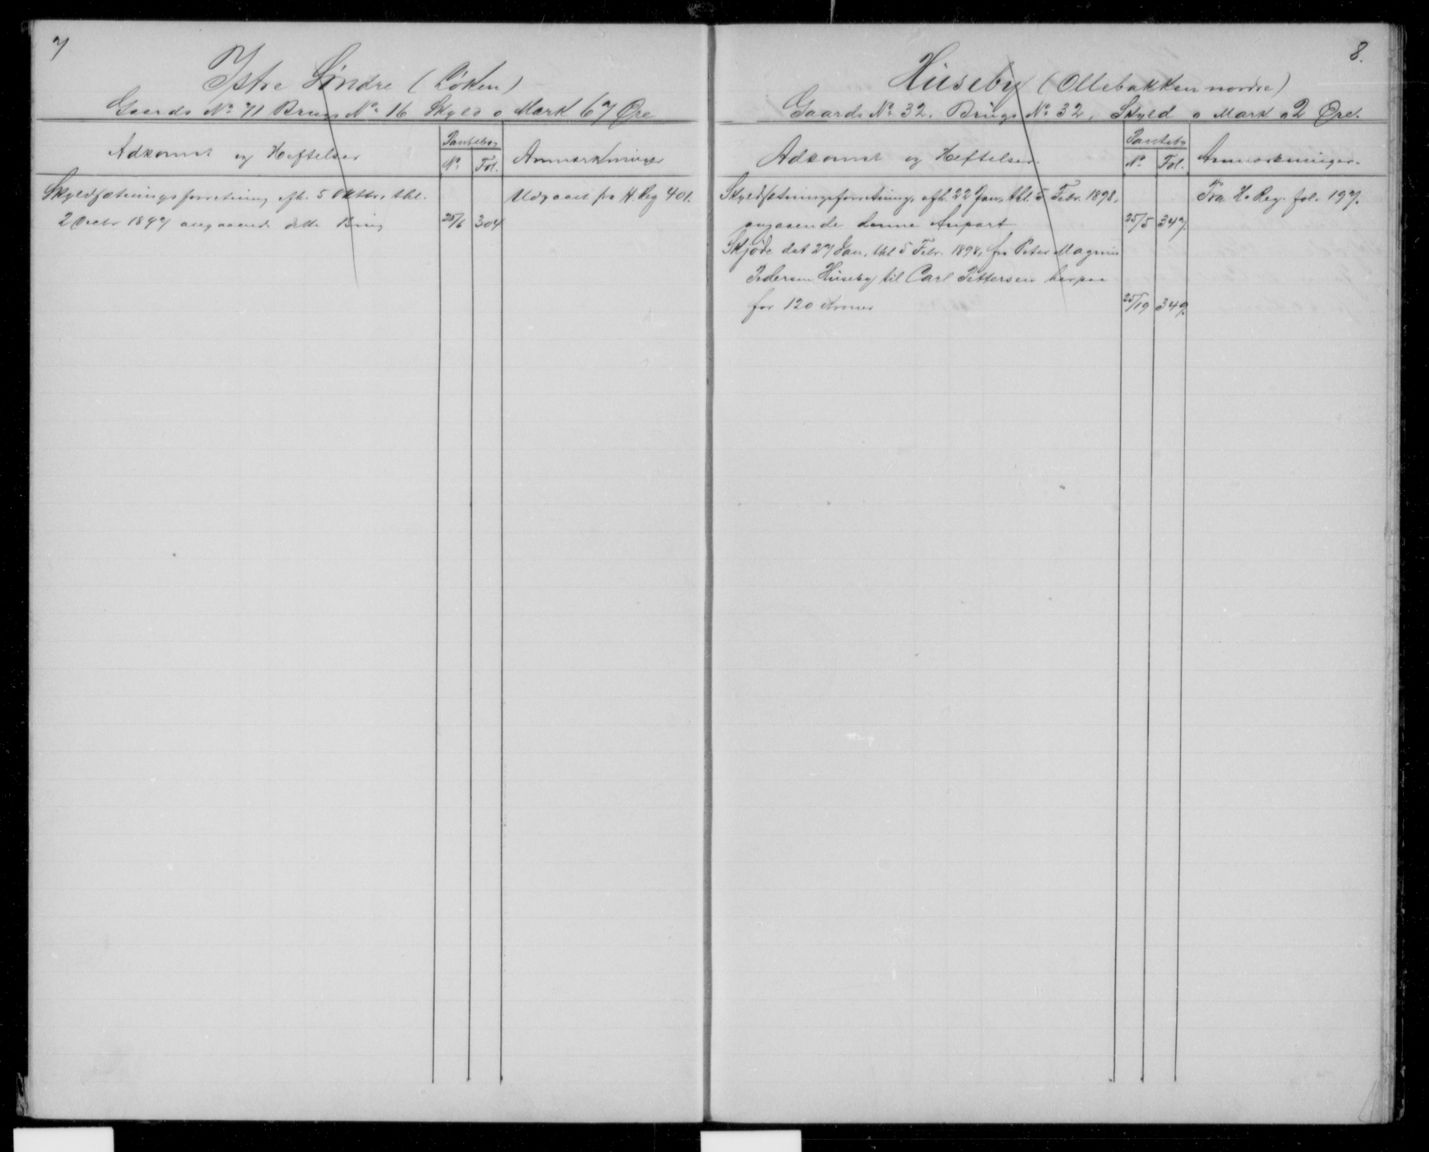 7
Istre Søndre (Løken)
Gaards No 71 Brugs No 16 Skyld 0 Mark 67 Øre
Adkomst og Heftelser
Pantebog
No
Fol.
Anmærkninger
Skyldsætningsforretning afh. 5 Oktbr, thl.
2 Decbr 1897 angaaende dette Brug
25/6
304
Udgaaet fra H. Reg 401.
8.
Huseby (Ollebakken nordre)
Gaards No 32. Brugs No 32. Skyld 0 Mark 02 Øre.
Adkomst og Heftelser.
Pantebg
No
Fol.
Anmærkninger.
Skyldsætningsforretning, afh. 22 Jan, thl. 5 Febr. 1898,
angaaende denne Anpart
25/5
347.
Fra H. Reg. fol. 197.
Skjøde dat 27 Jan, thl 5 Febr. 1898, fra Peter Magnus
Pedersen Huseby til Carl Pettersen herpaa
for 120 Kroner
25/19
349.